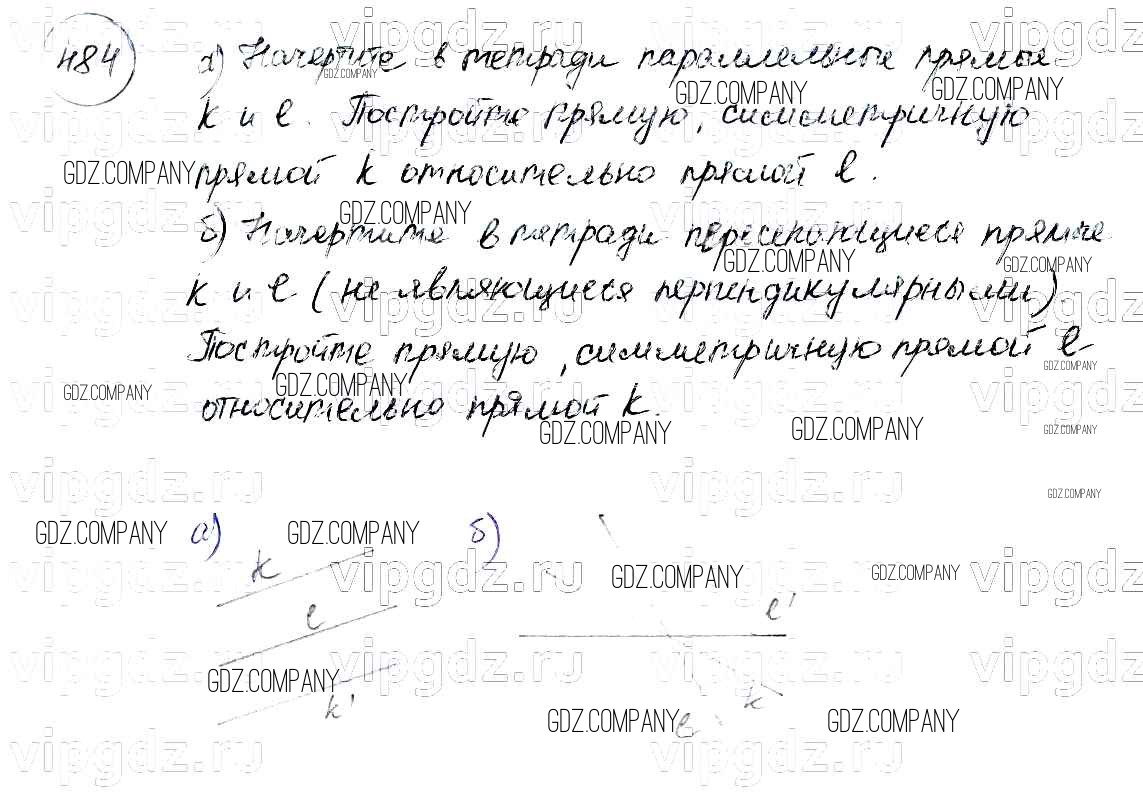 484
а) Начертите в тетради параллельные прямые
k и l. Постройте прямую, симметричную
прямой k относительно прямой l.
б) Начертите в тетради пересекающиеся прямые
k и l (не являющиеся перпендикулярными)
Постройте прямую, симметричную прямой l
относительно прямой k.
а) б)
k
l
k'
l'
k
l
vipgdz.ru
GDZ.COMPANY